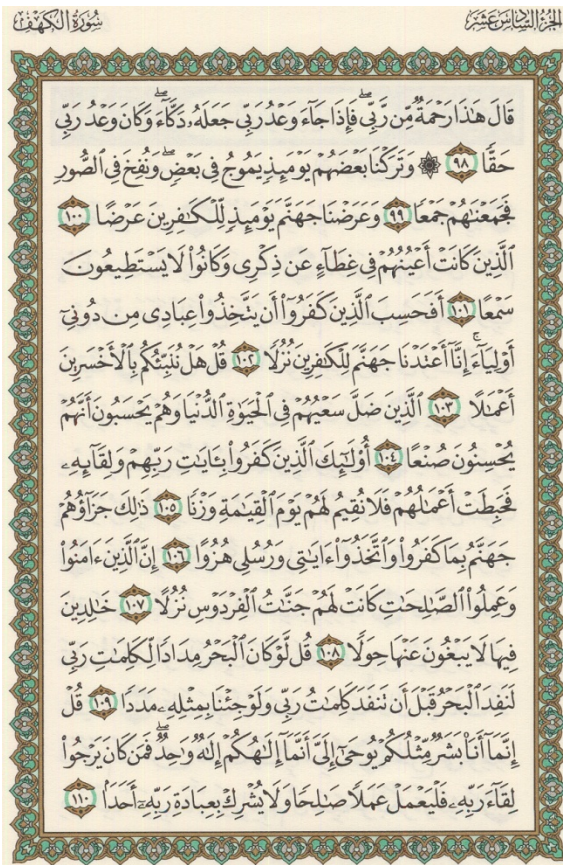 الجزء السادس عشر
سورة الكهف
قَالَ هَٰذَا رَحْمَةٌ مِّن رَّبِّى ۖ فَإِذَا جَآءَ وَعْدُ رَبِّى جَعَلَهُۥ دَكَّآءَ ۖ وَكَانَ وَعْدُ رَبِّى
حَقًّا ٩٨ ۞ وَتَرَكْنَا بَعْضَهُمْ يَوْمَئِذٍ يَمُوجُ فِى بَعْضٍ ۖ وَنُفِخَ فِى ٱلصُّورِ
فَجَمَعْنَٰهُمْ جَمْعًا ٩٩ وَعَرَضْنَا جَهَنَّمَ يَوْمَئِذٍ لِّلْكَٰفِرِينَ عَرْضًا ١٠٠
ٱلَّذِينَ كَانَتْ أَعْيُنُهُمْ فِى غِطَآءٍ عَن ذِكْرِى وَكَانُوا۟ لَا يَسْتَطِيعُونَ
سَمْعًا ١٠١ أَفَحَسِبَ ٱلَّذِينَ كَفَرُوٓا۟ أَن يَتَّخِذُوا۟ عِبَادِى مِن دُونِىٓ
أَوْلِيَآءَ ۚ إِنَّآ أَعْتَدْنَا جَهَنَّمَ لِلْكَٰفِرِينَ نُزُلًا ١٠٢ قُلْ هَلْ نُنَبِّئُكُم بِٱلْأَخْسَرِينَ
أَعْمَٰلًا ١٠٣ ٱلَّذِينَ ضَلَّ سَعْيُهُمْ فِى ٱلْحَيَوٰةِ ٱلدُّنْيَا وَهُمْ يَحْسَبُونَ أَنَّهُمْ
يُحْسِنُونَ صُنْعًا ١٠٤ أُو۟لَٰٓئِكَ ٱلَّذِينَ كَفَرُوا۟ بِـَٔايَٰتِ رَبِّهِمْ وَلِقَآئِهِۦ
فَحَبِطَتْ أَعْمَٰلُهُمْ فَلَا نُقِيمُ لَهُمْ يَوْمَ ٱلْقِيَٰمَةِ وَزْنًا ١٠٥ ذَٰلِكَ جَزَآؤُهُمْ
جَهَنَّمُ بِمَا كَفَرُوا۟ وَٱتَّخَذُوٓا۟ ءَايَٰتِى وَرُسُلِى هُزُوًا ١٠٦ إِنَّ ٱلَّذِينَ ءَامَنُوا۟
وَعَمِلُوا۟ ٱلصَّٰلِحَٰتِ كَانَتْ لَهُمْ جَنَّٰتُ ٱلْفِرْدَوْسِ نُزُلًا ١٠٧ خَٰلِدِينَ
فِيهَا لَا يَبْغُونَ عَنْهَا حِوَلًا ١٠٨ قُل لَّوْ كَانَ ٱلْبَحْرُ مِدَادًا لِّكَلِمَٰتِ رَبِّى
لَنَفِدَ ٱلْبَحْرُ قَبْلَ أَن تَنفَدَ كَلِمَٰتُ رَبِّى وَلَوْ جِئْنَا بِمِثْلِهِۦ مَدَدًا ١٠٩ قُلْ
إِنَّمَآ أَنَا۠ بَشَرٌ مِّثْلُكُمْ يُوحَىٰٓ إِلَىَّ أَنَّمَآ إِلَٰهُكُمْ إِلَٰهٌ وَٰحِدٌ ۖ فَمَن كَانَ يَرْجُوا۟
لِقَآءَ رَبِّهِۦ فَلْيَعْمَلْ عَمَلًا صَٰلِحًا وَلَا يُشْرِكْ بِعِبَادَةِ رَبِّهِۦٓ أَحَدًۢا ١١٠